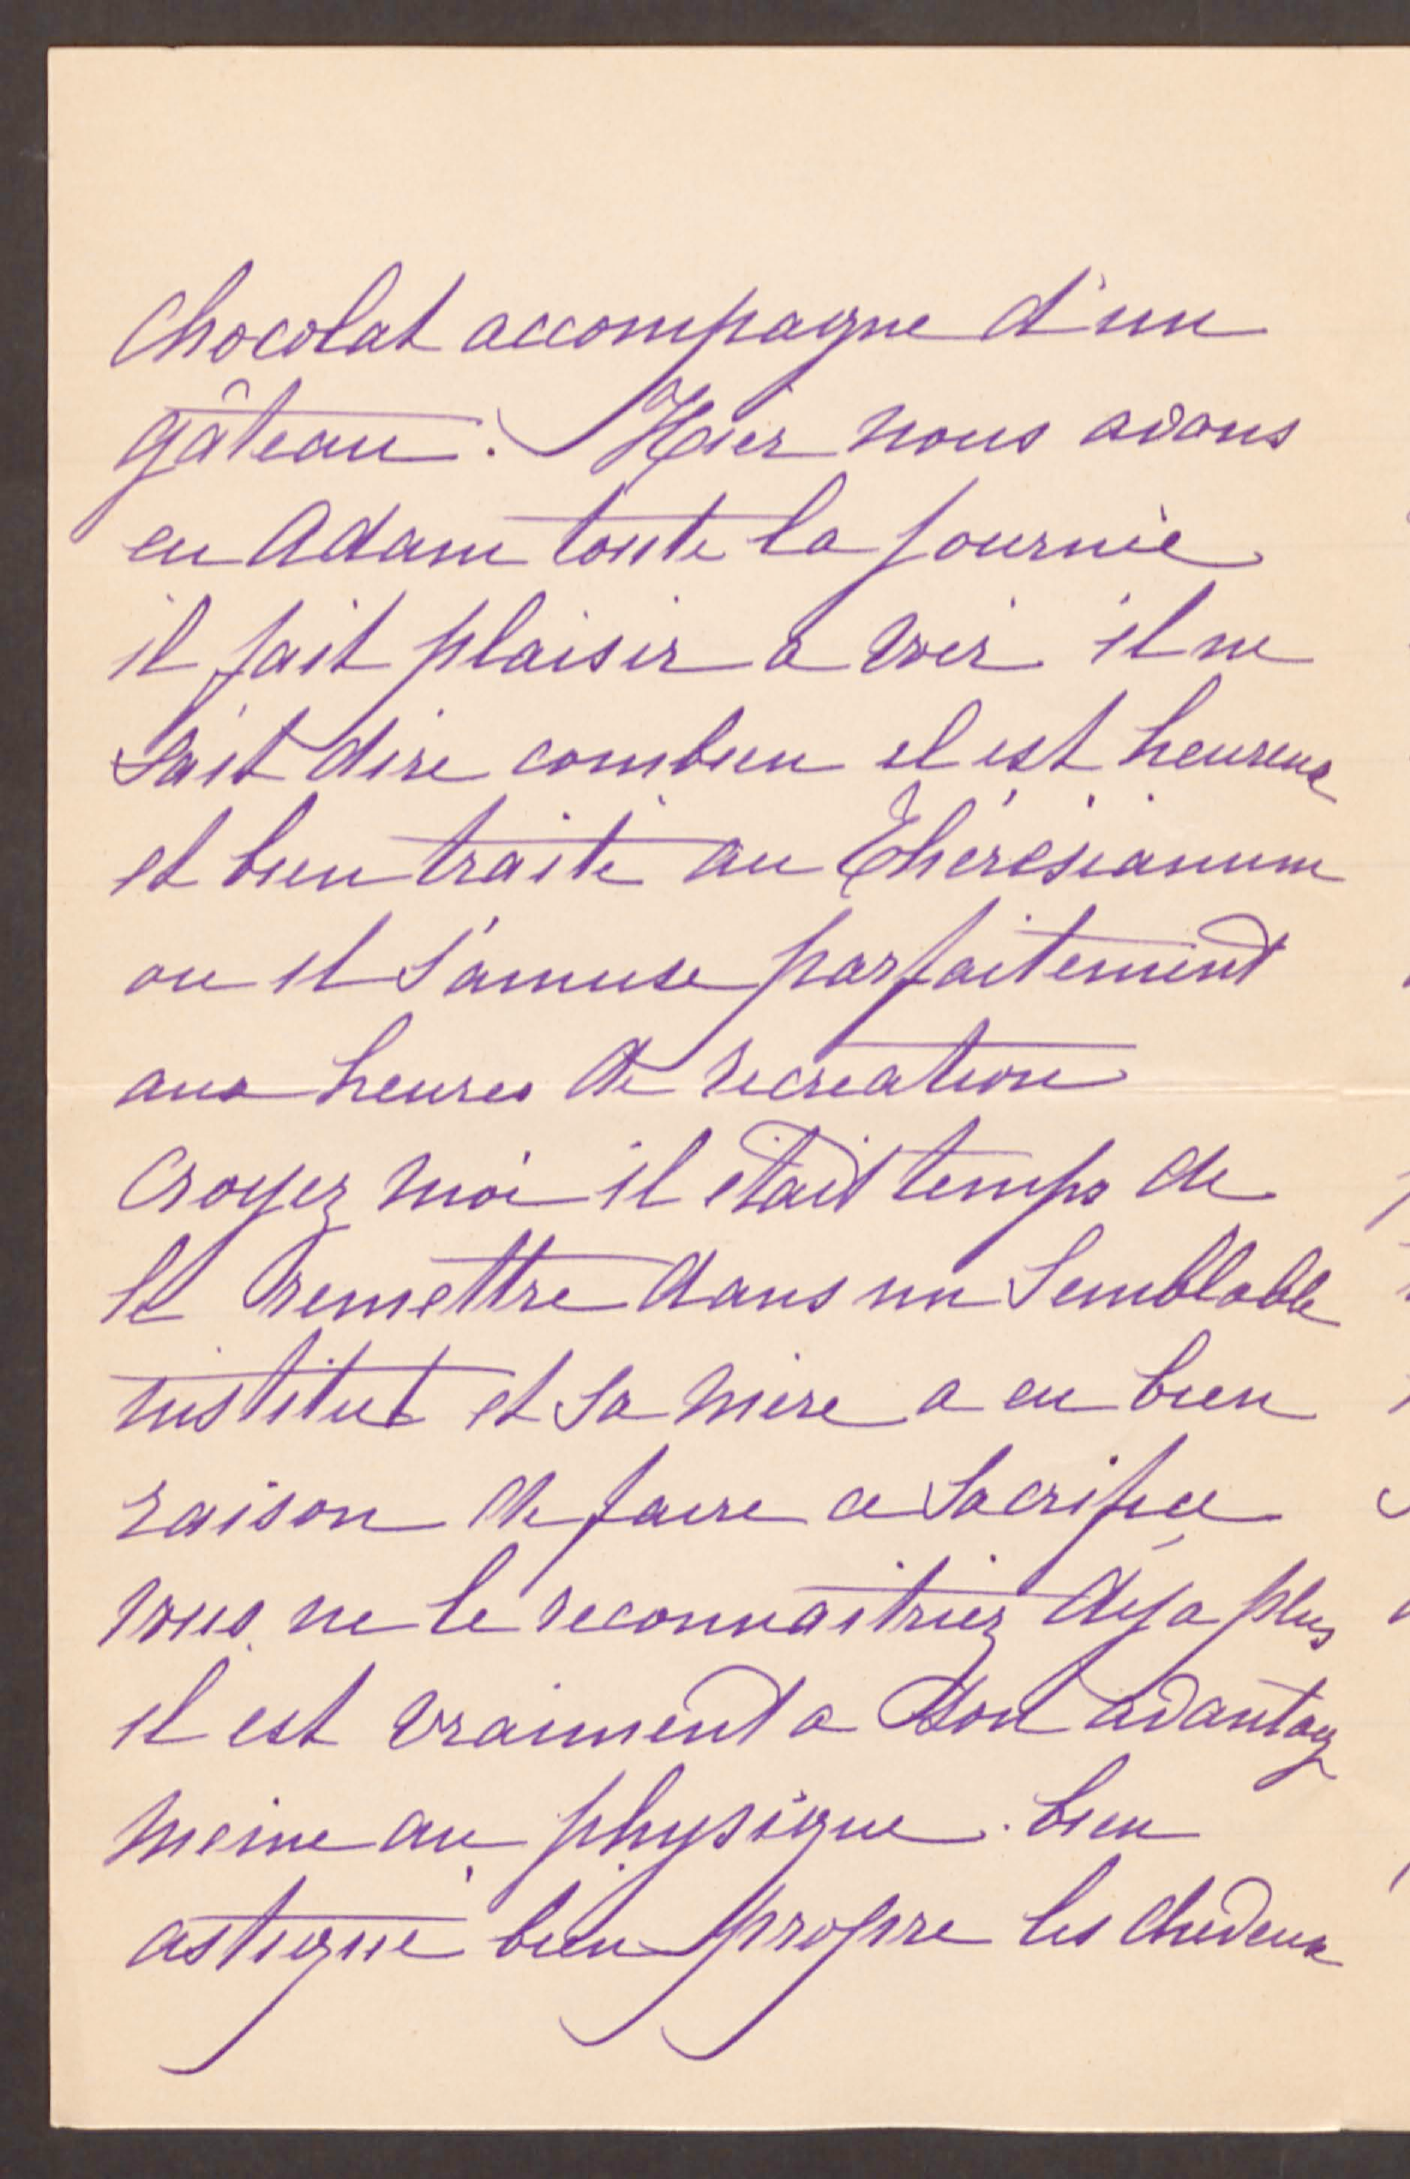 Chocolat accompagne d'un
gâteau. Hier nous avons
eu Adam toute la journée
il fait plaisir a voir il ne
sait dire combien il est heureux
et bien traité au Thérésianum
ou il s'amuse parfaitement
aux heures de recreation
Croyez moi il était temps de
le remettre dans un semblable
institut et sa mère a eu bien
raison de faire ce sacrifice
vous ne le reconnaitriez déja plus
il est vraiment a son avantage
meme au physique. bien
astiqué bien propre les cheveux